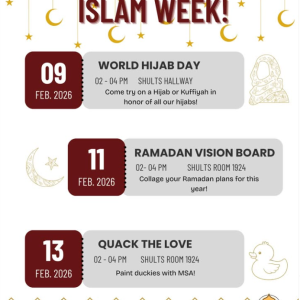 ISLAM WEEK!
09
FEB. 2026
WORLD HIJAB DAY
02 - 04 PM SHULTS HALLWAY
Come try on a Hijab or Kuffiyah in
honor of all our hijabs!
11
FEB. 2026
RAMADAN VISION BOARD
02- 04 PM SHULTS ROOM 1924
Collage your Ramadan plans for this
year!
13
FEB. 2026
QUACK THE LOVE
02 - 04 PM SHULTS ROOM 1924
Paint duckies with MSA!